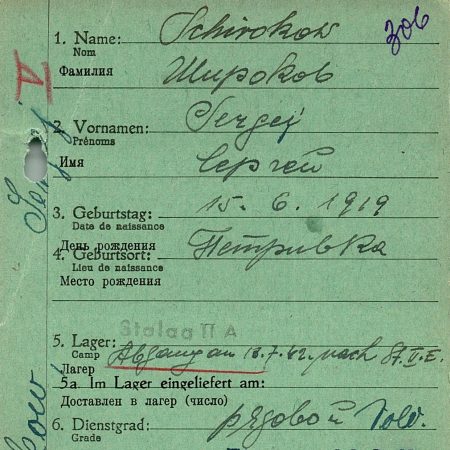 306
1. Name: Schirokow
Nom
Фамилия Широков
V
2. Vornamen: Sergej
Prénoms
Имя Сергей
3. Geburtstag: 15. 6. 1919
Date de naissance
День рождения
4. Geburtsort: Петривка
Lieu de naissance
Место рождения
Stalag II A
5. Lager: Abgang am 13.7.42. nach St. II. E.
Camp
Лагер
5a. Im Lager eingeliefert am:
Доставлен в лагер (число)
6. Dienstgrad: рядовой Sold.
Grade